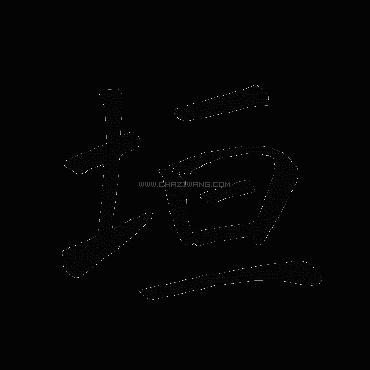 垣
WWW.CHAZIWANG.COM